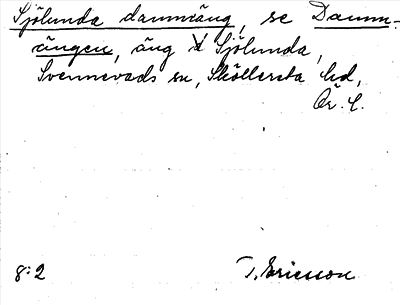 Sjölunda dammäng, se Damm-
ängen, äng i Sjölunda,
Svennevads sn, Sköllersta hd,
Ör. l.
8:2 T. Ericsson